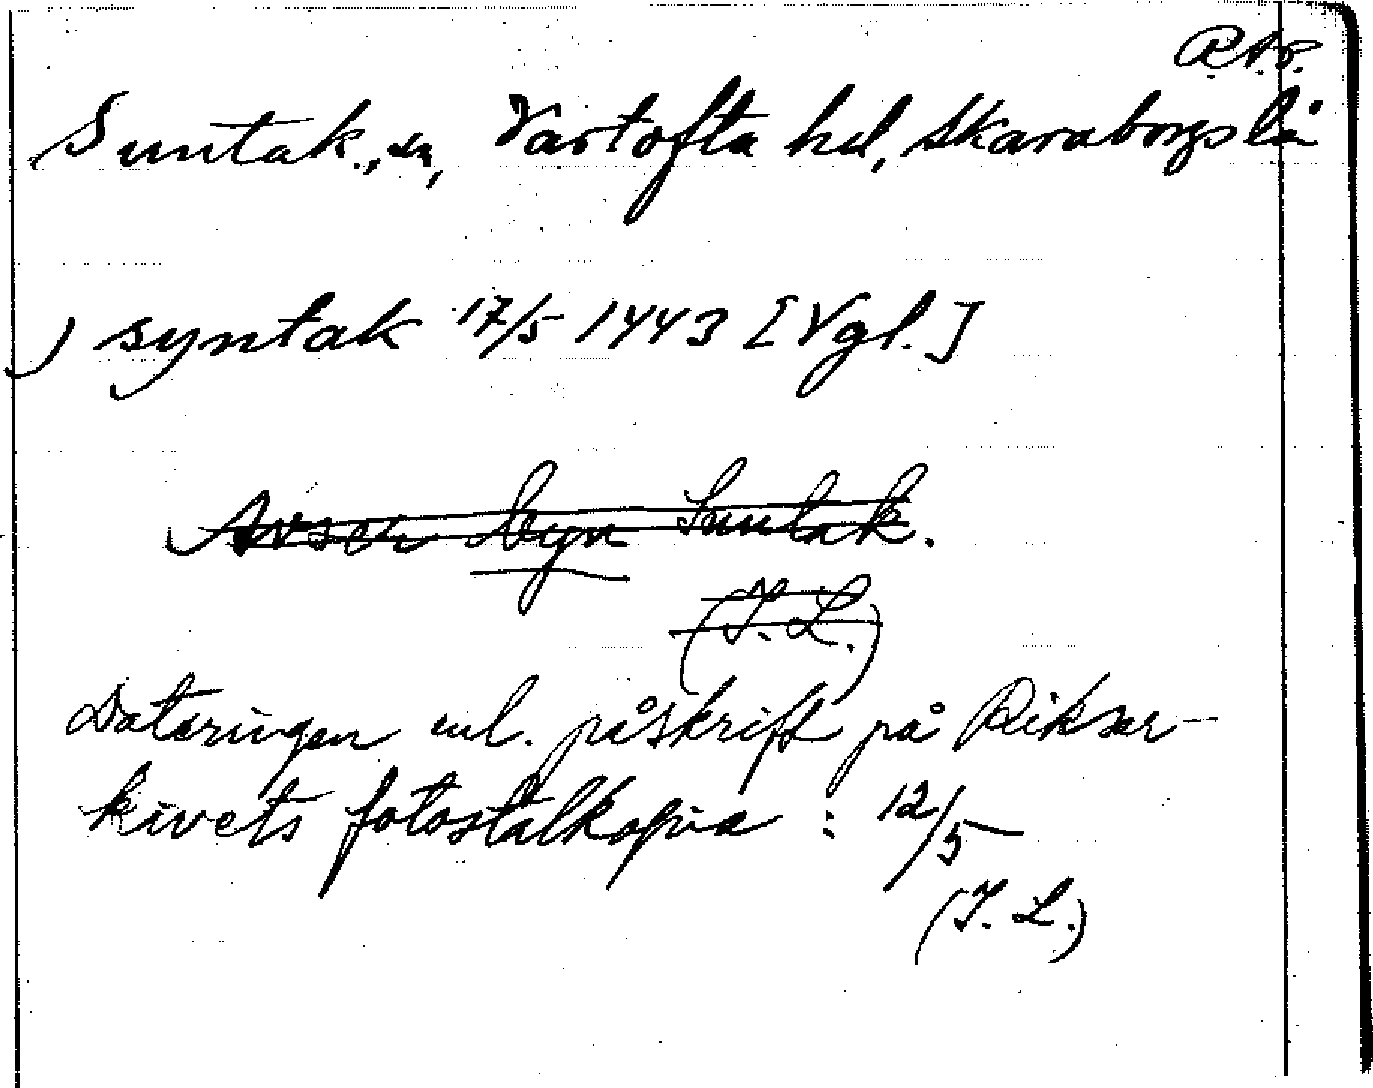 R.A.P.
Suntak, sn, Vartofta hd, Skaraborgs lä
) syntak 17/5 1443 [Vgl.]
Avser byn Suntak.
(I. L.)
Dateringen enl. påskrift på Riksar-
kivets fotostatkopia : 12/5
(I. L.)